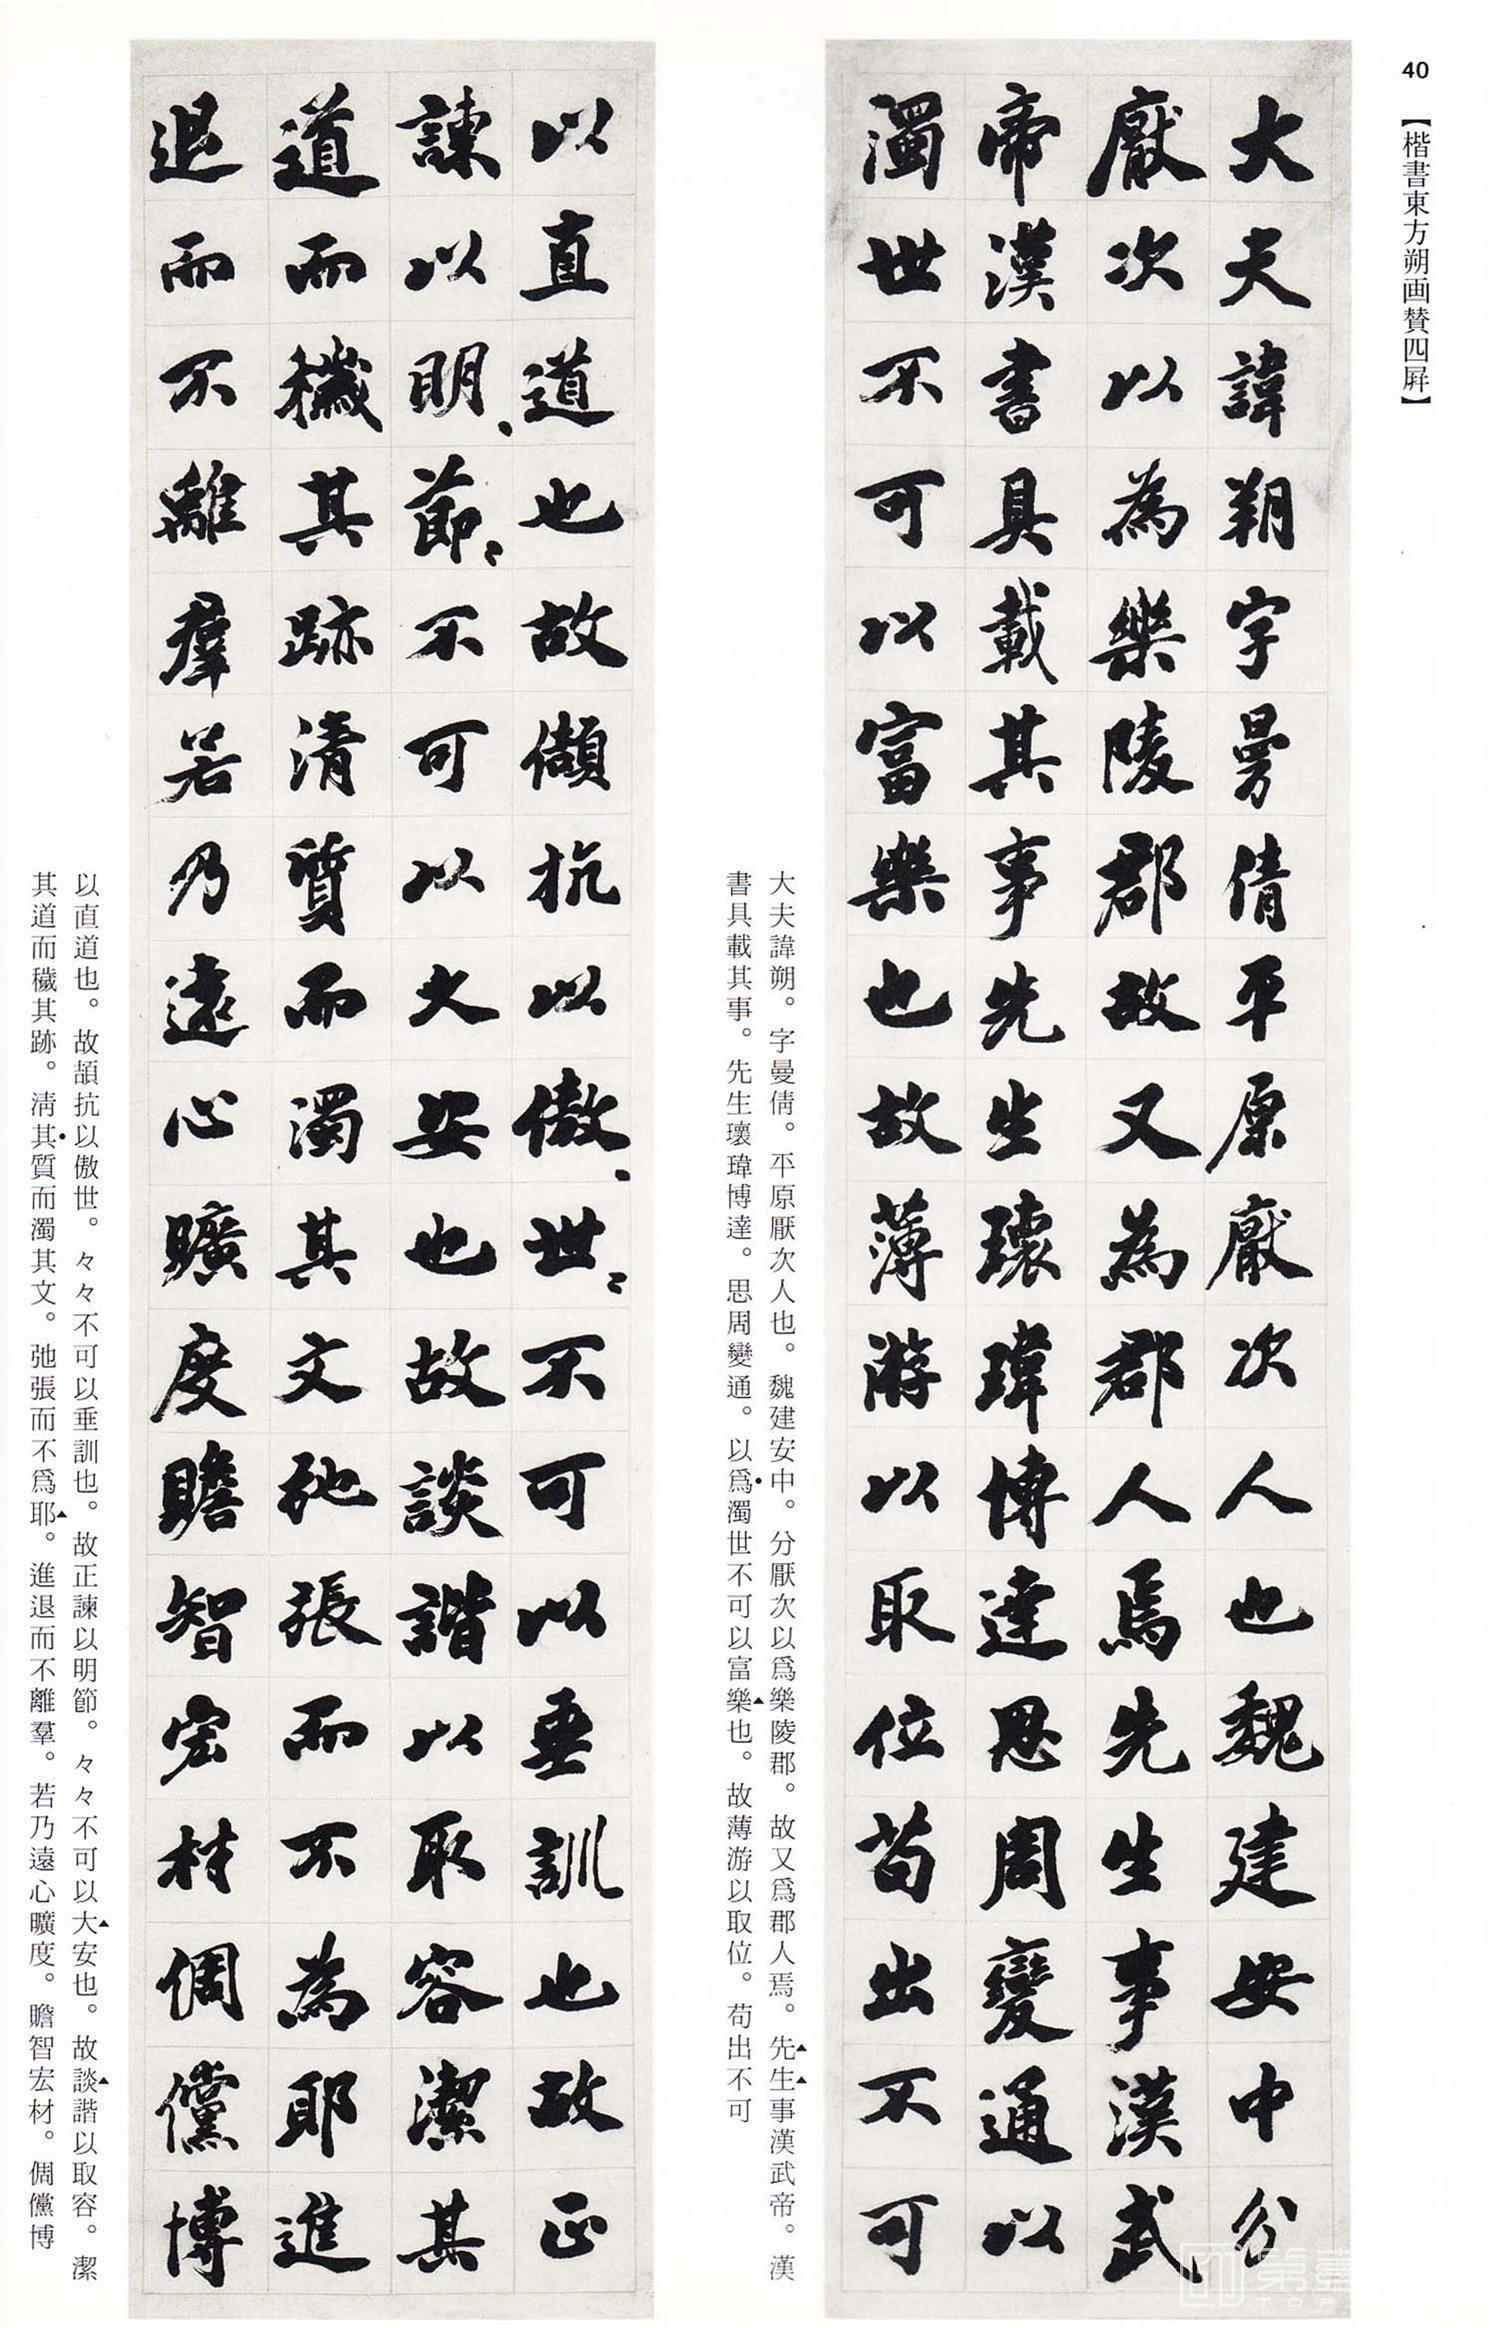 40
【楷書東方朔画賛四屏】
大夫諱朔字曼倩平原厭次人也魏建安中分
厭次以為樂陵郡故又為郡人焉先生事漢武
帝漢書具載其事先生瓌瑋博達思周變通以
濁世不可以富樂也故薄游以取位苟出不可
大夫諱朔。字曼倩。平原厭次人也。魏建安中。分厭次以爲樂陵郡。故又爲郡人焉。先生事漢武帝。漢
書具載其事。先生瓌瑋博達。思周變通。以爲濁世不可以富樂也。故薄游以取位。苟出不可
以直道也故頡抗以傲、世〻不可以垂訓也故正
諫以明、節〻不可以大安也故談諧以取容潔其
道而穢其跡清質而濁其文弛張而不為耶進
退而不離羣若乃遠心曠度贍智宏材倜儻博
以直道也。故頡抗以傲世。々々不可以垂訓也。故正諫以明節。々々不可以大安也。故談諧以取容。潔
其道而穢其跡。清其質而濁其文。弛張而不爲耶。進退而不離羣。若乃遠心曠度。贍智宏材。倜儻博